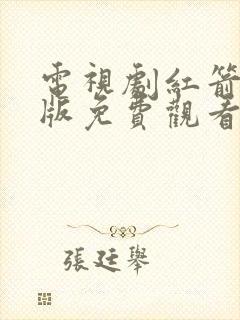 電視劇紅箭
版免費觀看
張廷舉